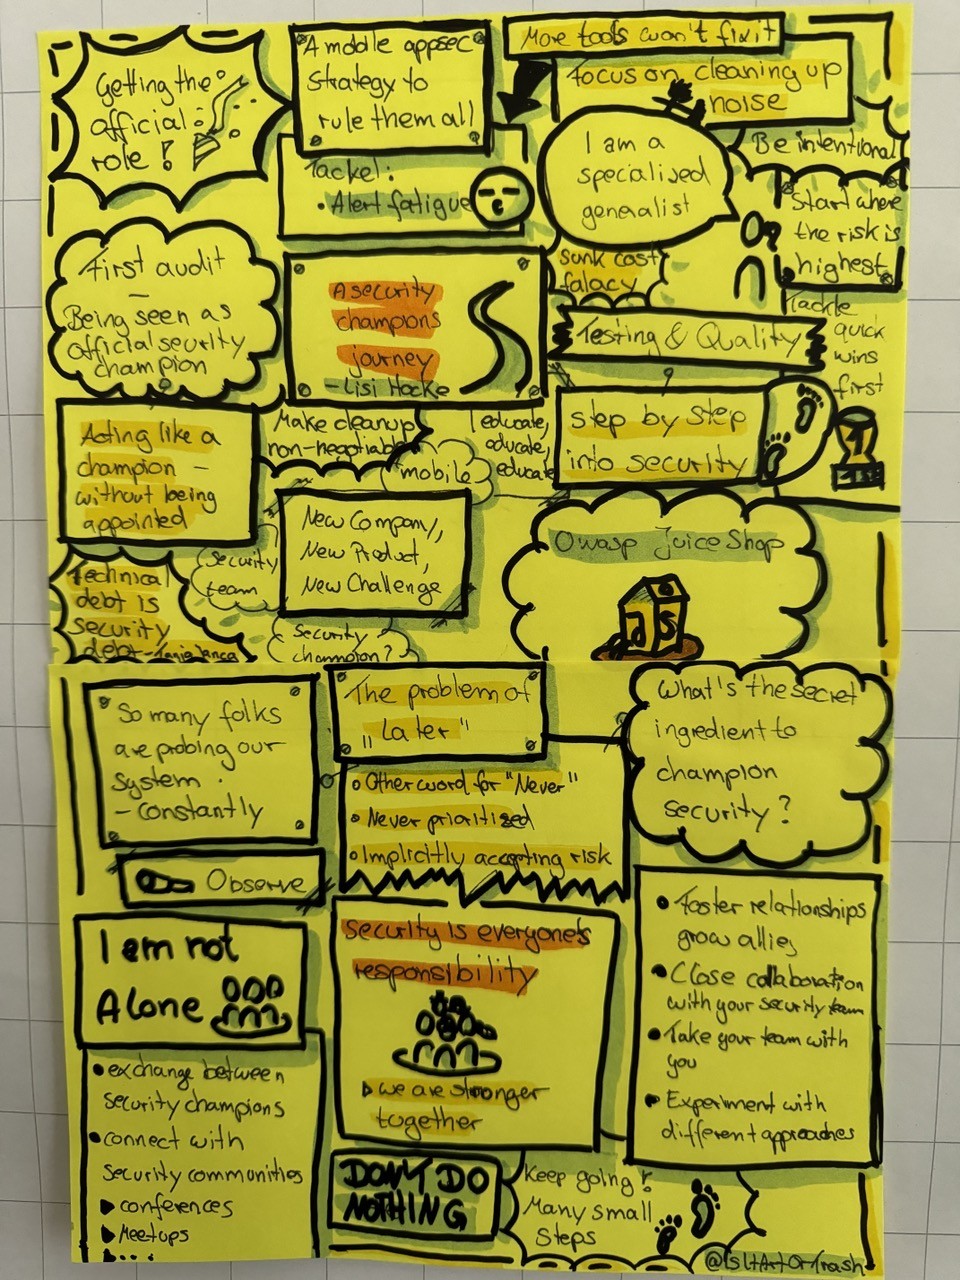 Getting the
official
role!
A middle appsec
strategy to
rule them all
More tools won't fix it
Focus on cleaning up
noise
Tackel:
• Alert fatigue
I am a
specialised
generalist
Be intentional
Start where
the risk is
highest
First audit
–
Being seen as
official security
champion
A security
champions
journey
– Lisi Hocke
sunk cost
falacy
Testing & Quality
Tackle
quick
wins
first
Acting like a
champion –
without being
appointed
Make cleanup
non-negotiable
mobile
educate,
educate,
educate
step by step
into security
1
New Company,
New Product,
New Challenge
Security
team
Security
champion?
Technical
debt is
security
debt – Tanja Janca
Owasp Juice Shop
So many folks
are probing our
system
– constantly
Observe
The problem of
"Later"
• Other word for "Never"
• Never prioritized
• Implicitly accepting risk
What's the secret
ingredient to
champion
security?
I am not
Alone
• exchange between
security champions
• connect with
security communities
▸ conferences
▸ Meetups
▸ ...
Security is everyone's
responsibility
▸ we are stronger
together
• Foster relationships
grow allies
• Close collaboration
with your security team
• Take your team with
you
• Experiment with
different approaches
DON'T DO
NOTHING
Keep going!
Many small
Steps